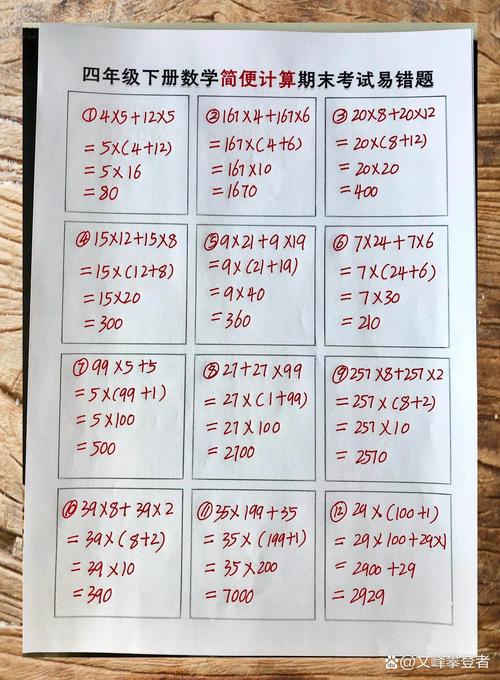 四年级下册数学简便计算期末考试易错题
①4×5+12×5
=5×(4+12)
=5×16
=80
②167×4+167×6
=167×(4+6)
=167×10
=1670
③20×8+20×12
=20×(8+12)
=20×20
=400
④15×12+15×8
=15×(12+8)
=15×20
=300
⑤9×21+9×19
=9×(21+19)
=9×40
=360
⑥7×24+7×6
=7×(24+6)
=7×30
=210
⑦99×5+5
=5×(99+1)
=5×100
=500
⑧27+27×99
=27×(1+99)
=27×100
=2700
⑨257×8+257×2
=257×(8+2)
=257×10
=2570
⑩39×8+39×2
=39×(8+2)
=39×10
=390
⑪35×199+35
=35×(199+1)
=35×200
=7000
⑫29×(100+1)
=29×100+29×1
=2900+29
=2929
@文峰攀登者